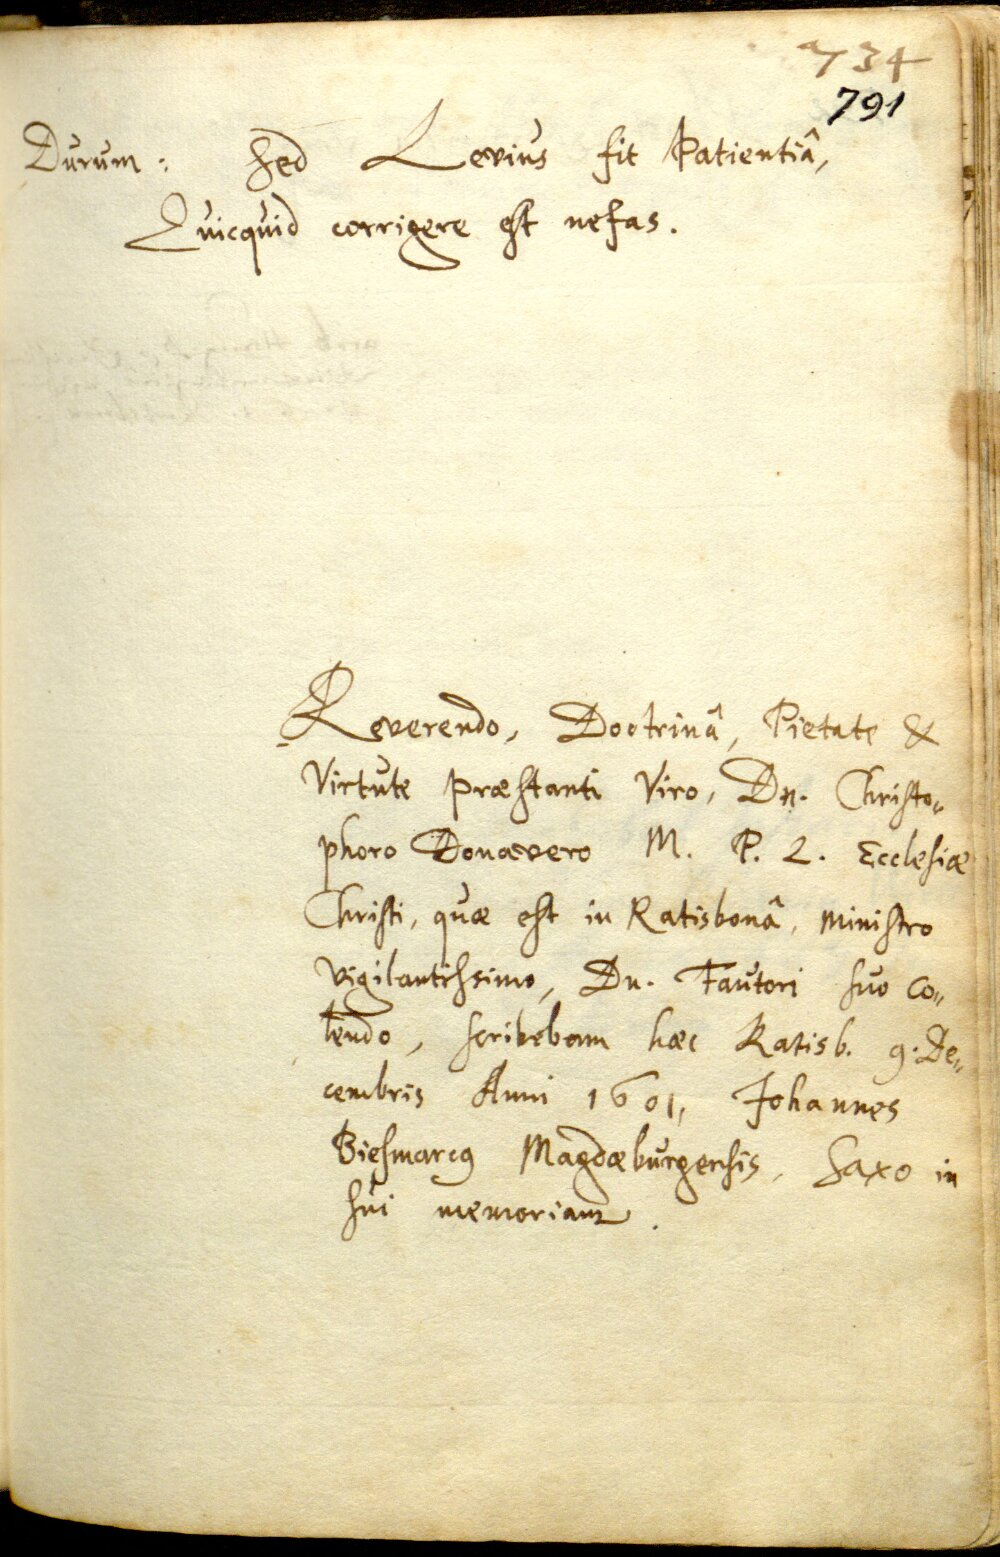 734
791
Durum: Sed Levius fit Patientiâ,
Quicquid corrigere est nefas.
Reverendo, Doctrinâ, Pietate &
Virtute præstanti Viro, Dn. Christo„
phoro Donavero M. P. L. Ecclesiæ
Christi, quæ est in Ratisbonâ, Ministro
vigilantissimo, Dn. Fautori suo co„
lendo, scribebam hæc Ratisb. 9. De„
cembris Anni 1601, Johannes
Biesmarcꝰ Magdæburgensis, Saxo in
sui memoriam.